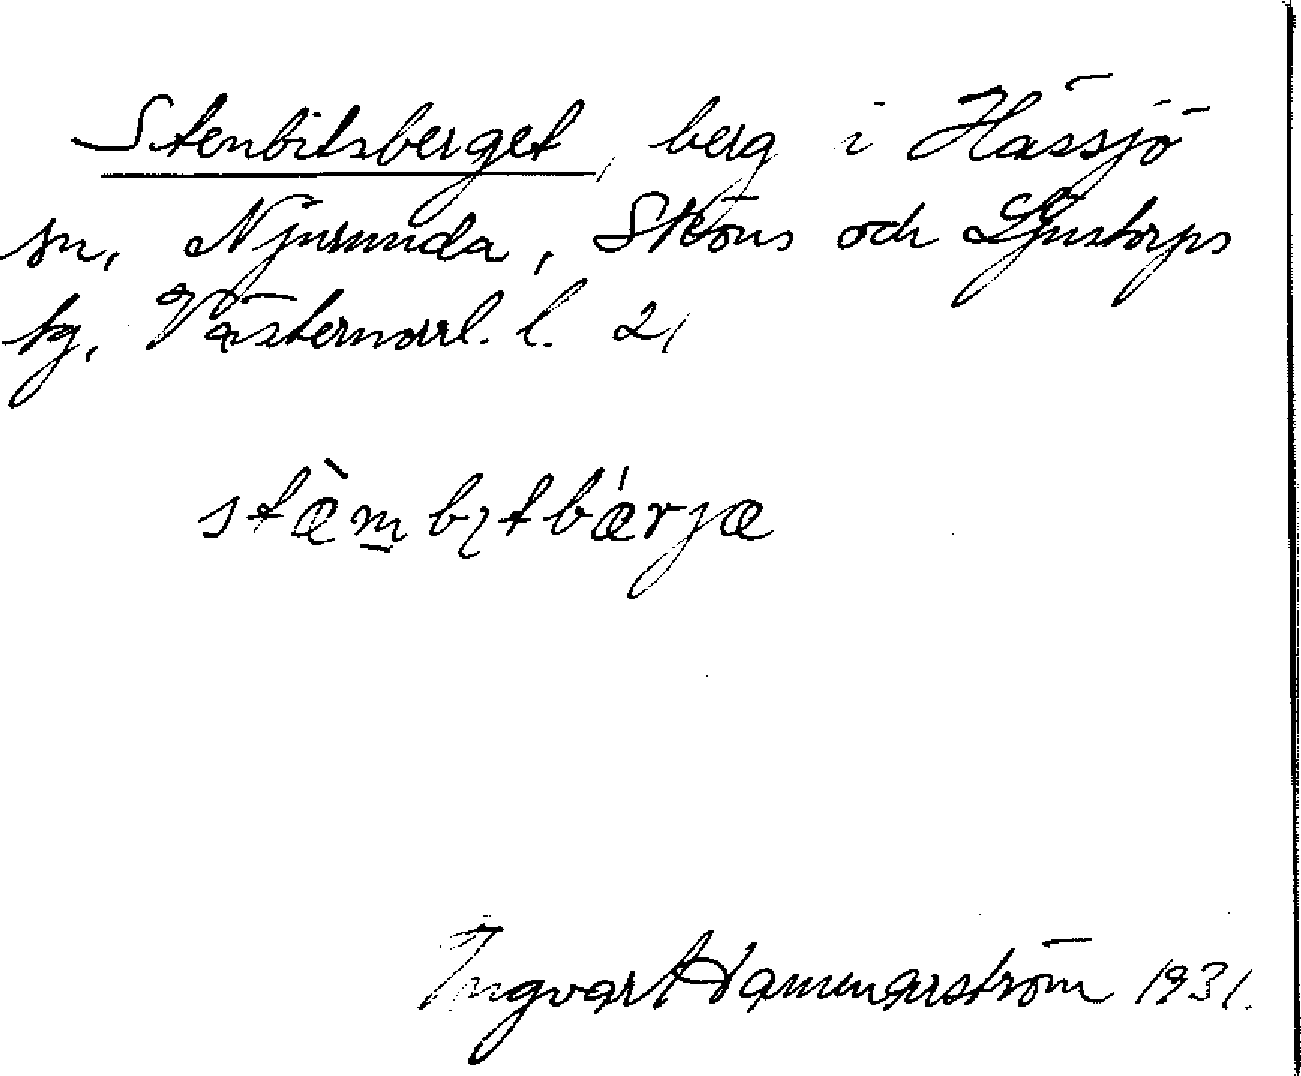 Stenbitsberget, berg i Hässjö
sn, Njurunda, Sköns och Ljustorps
tg, Västernorrl. l. 2,
stæ̀m̱bɩtbǽrjæ
Ingvar Hammarström 1931.